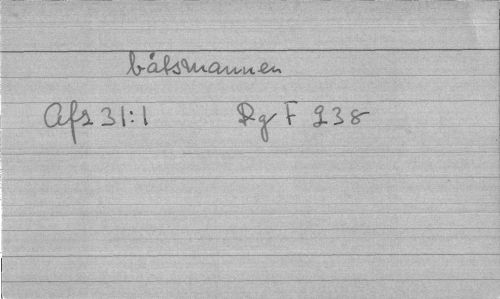 båtsmannen
Afs 31:1 Rg F 238